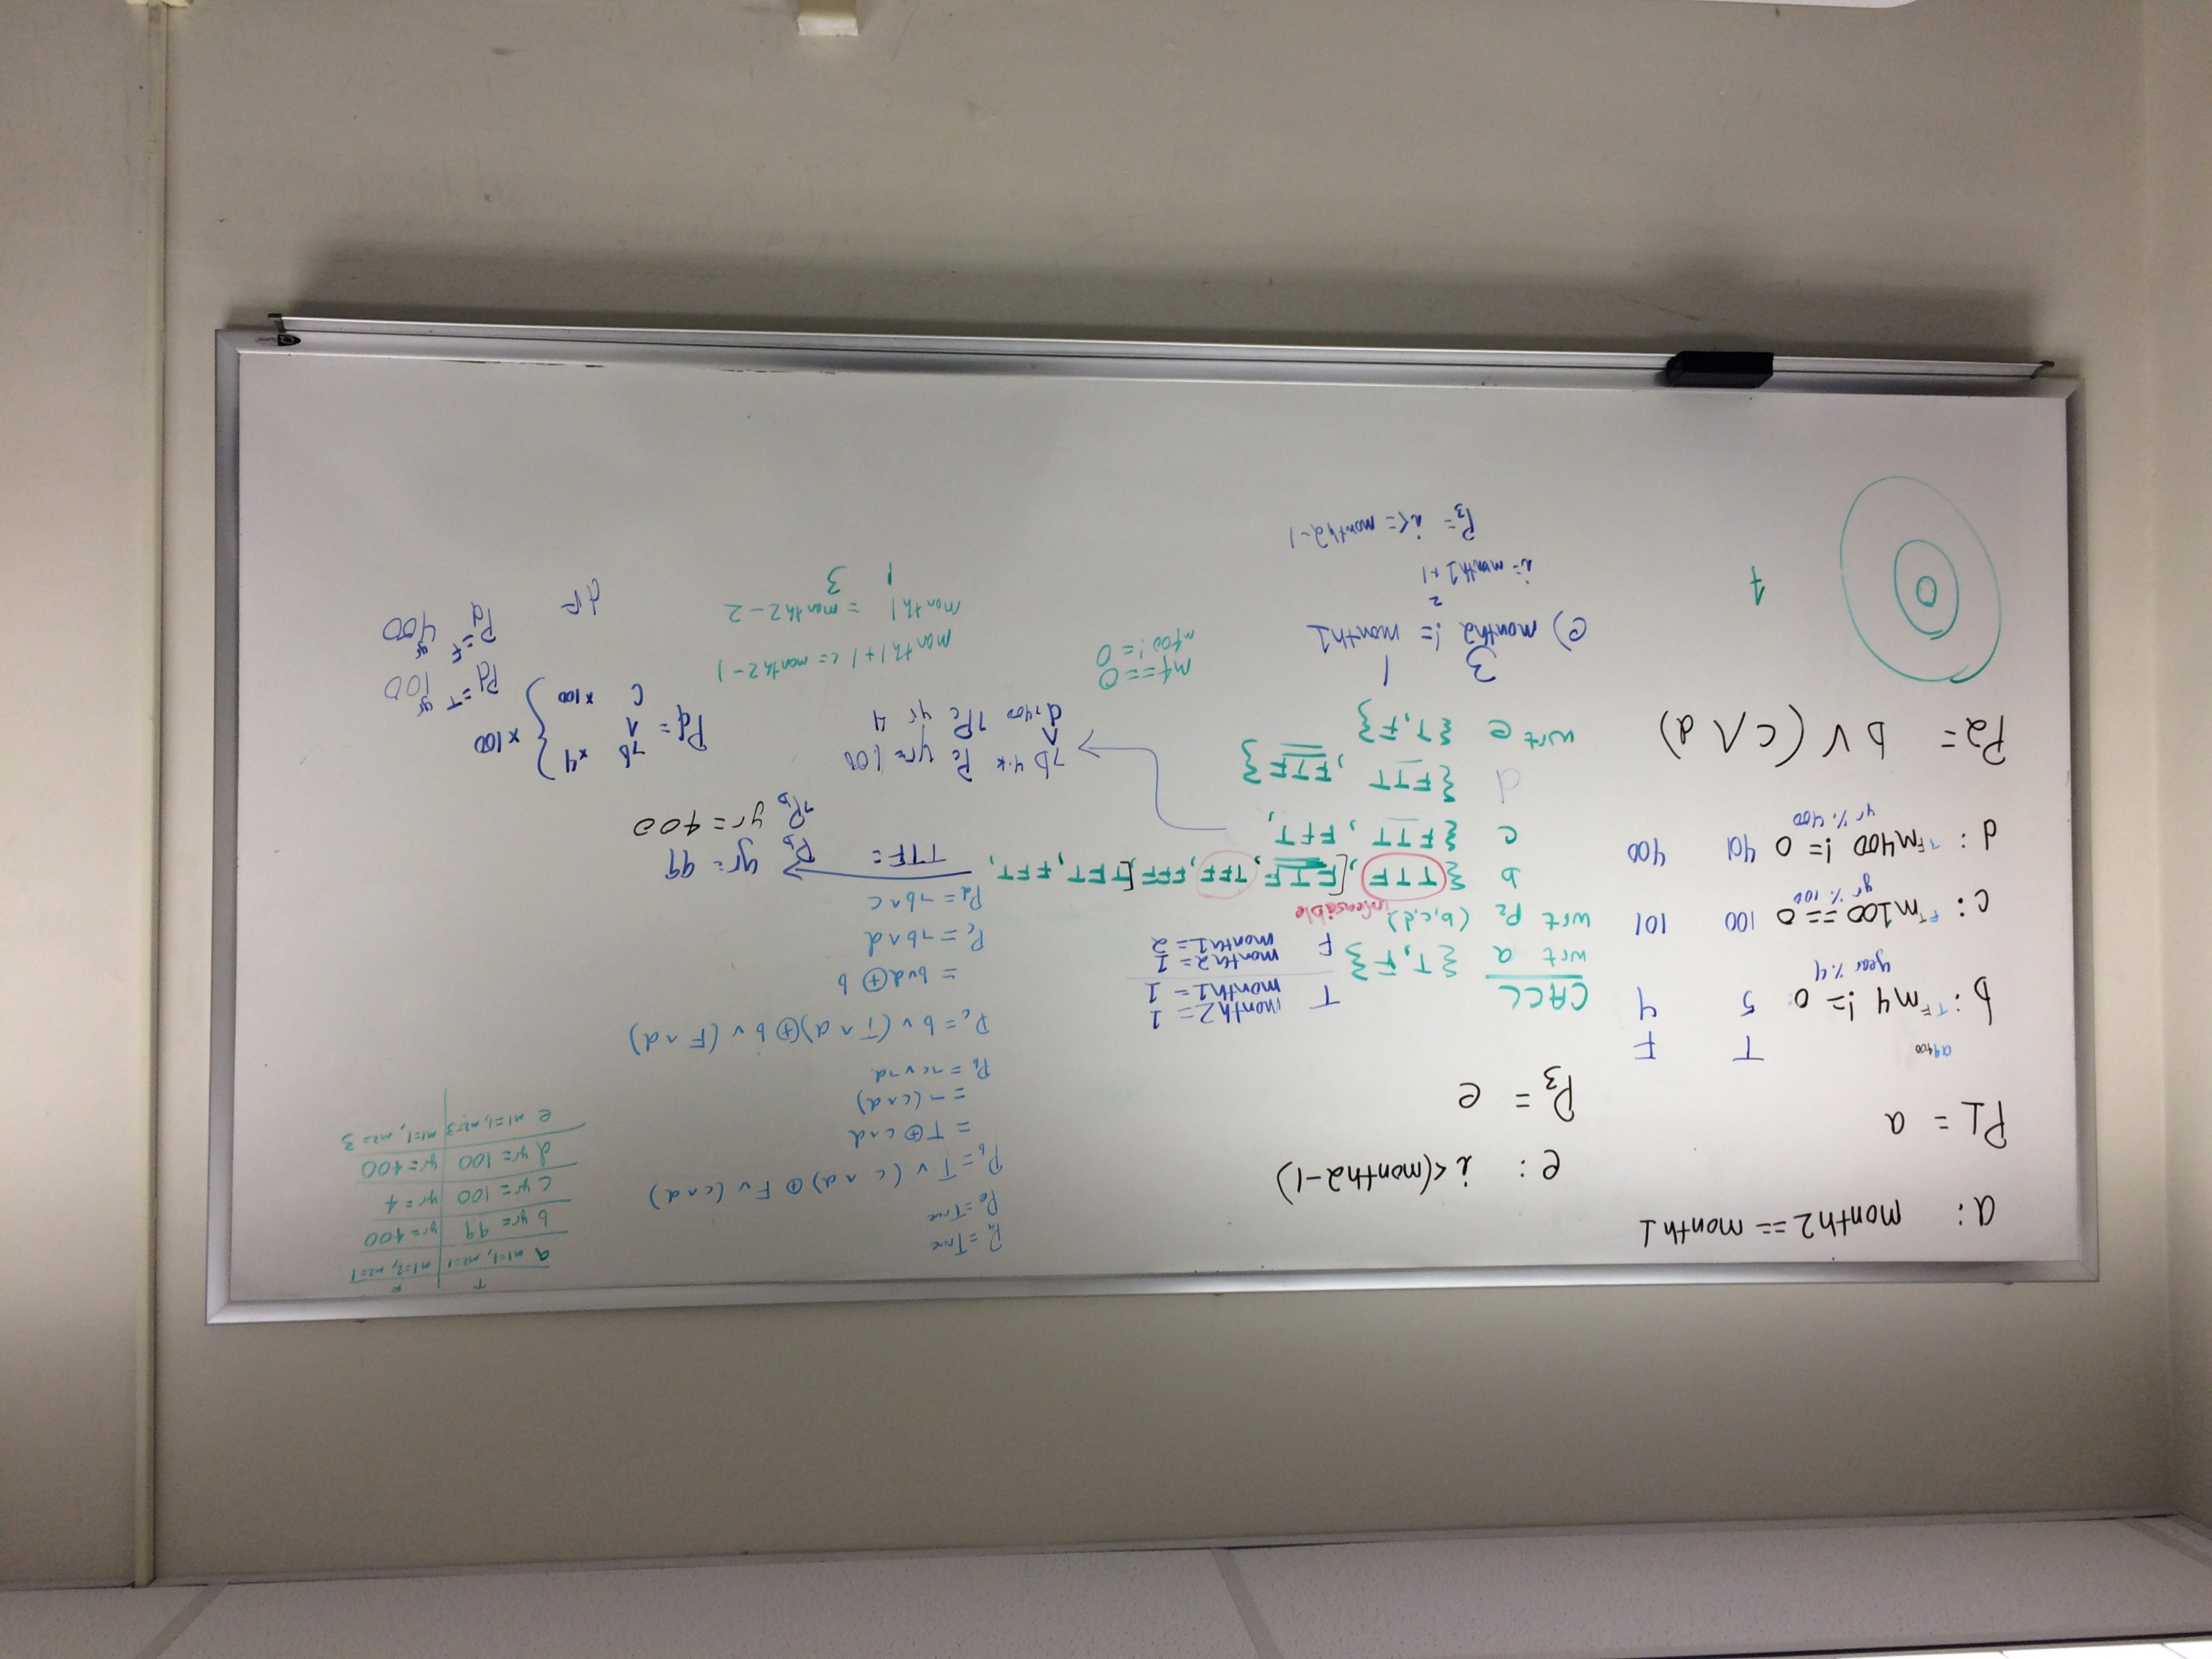 a: month2 == month1
P1 = a
e: i <(month2-1)
P3 = e
T F
b: T F m4 != 0 5 4
year % 4
c: F T m100 == 0 100 101
yr % 100
d: T F m400 != 0 401 400
yr % 400
P2 = b ∨ (c ∧ d)
CACC
wrt a {T, F}
T month2 = 1
month1 = 1
F month2 = 1
month1 = 2
wrt P2 (b,c,d)
infeasible
b {TTF, [FTF, TFF, FFF, [TFT, FFT,
c {FTT, FFT,
d {FTT, FTF}
wrt e {T, F}
3 1
e) month2 != month1
2
i = month1 +1
P3 = i <= month2-1
m4 == 0
m400 != 0
Pa = True
Pe = True
Pb = T ∨ (c ∧ d) ⊕ F ∨ (c ∧ d)
= T ⊕ c ∧ d
= ¬(c ∧ d)
Pb = ¬c ∨ ¬d
Pc = b ∨ (T ∧ d) ⊕ b ∨ (F ∧ d)
= b ∨ d ⊕ b
Pc = ¬b ∧ d
Pd = ¬b ∧ c
TTF: Pb yr = 99
¬Pb yr = 400
¬b 4·k Pc yr = 100
∧
d ¬400 ¬Pc yr 4
Pd = ¬b x4
∧
c x100
x100
Pd = T yr 100
Pd = F yr 400
month1 + 1 <= month2 - 1
month1 = month2 - 2
1 3
T F
a m1=1, m2=1 m1=2, m2=1
b yr = 99 yr = 400
c yr = 100 yr = 4
d yr = 100 yr = 400
e m1=1, m2=3 m1=1, m2=3